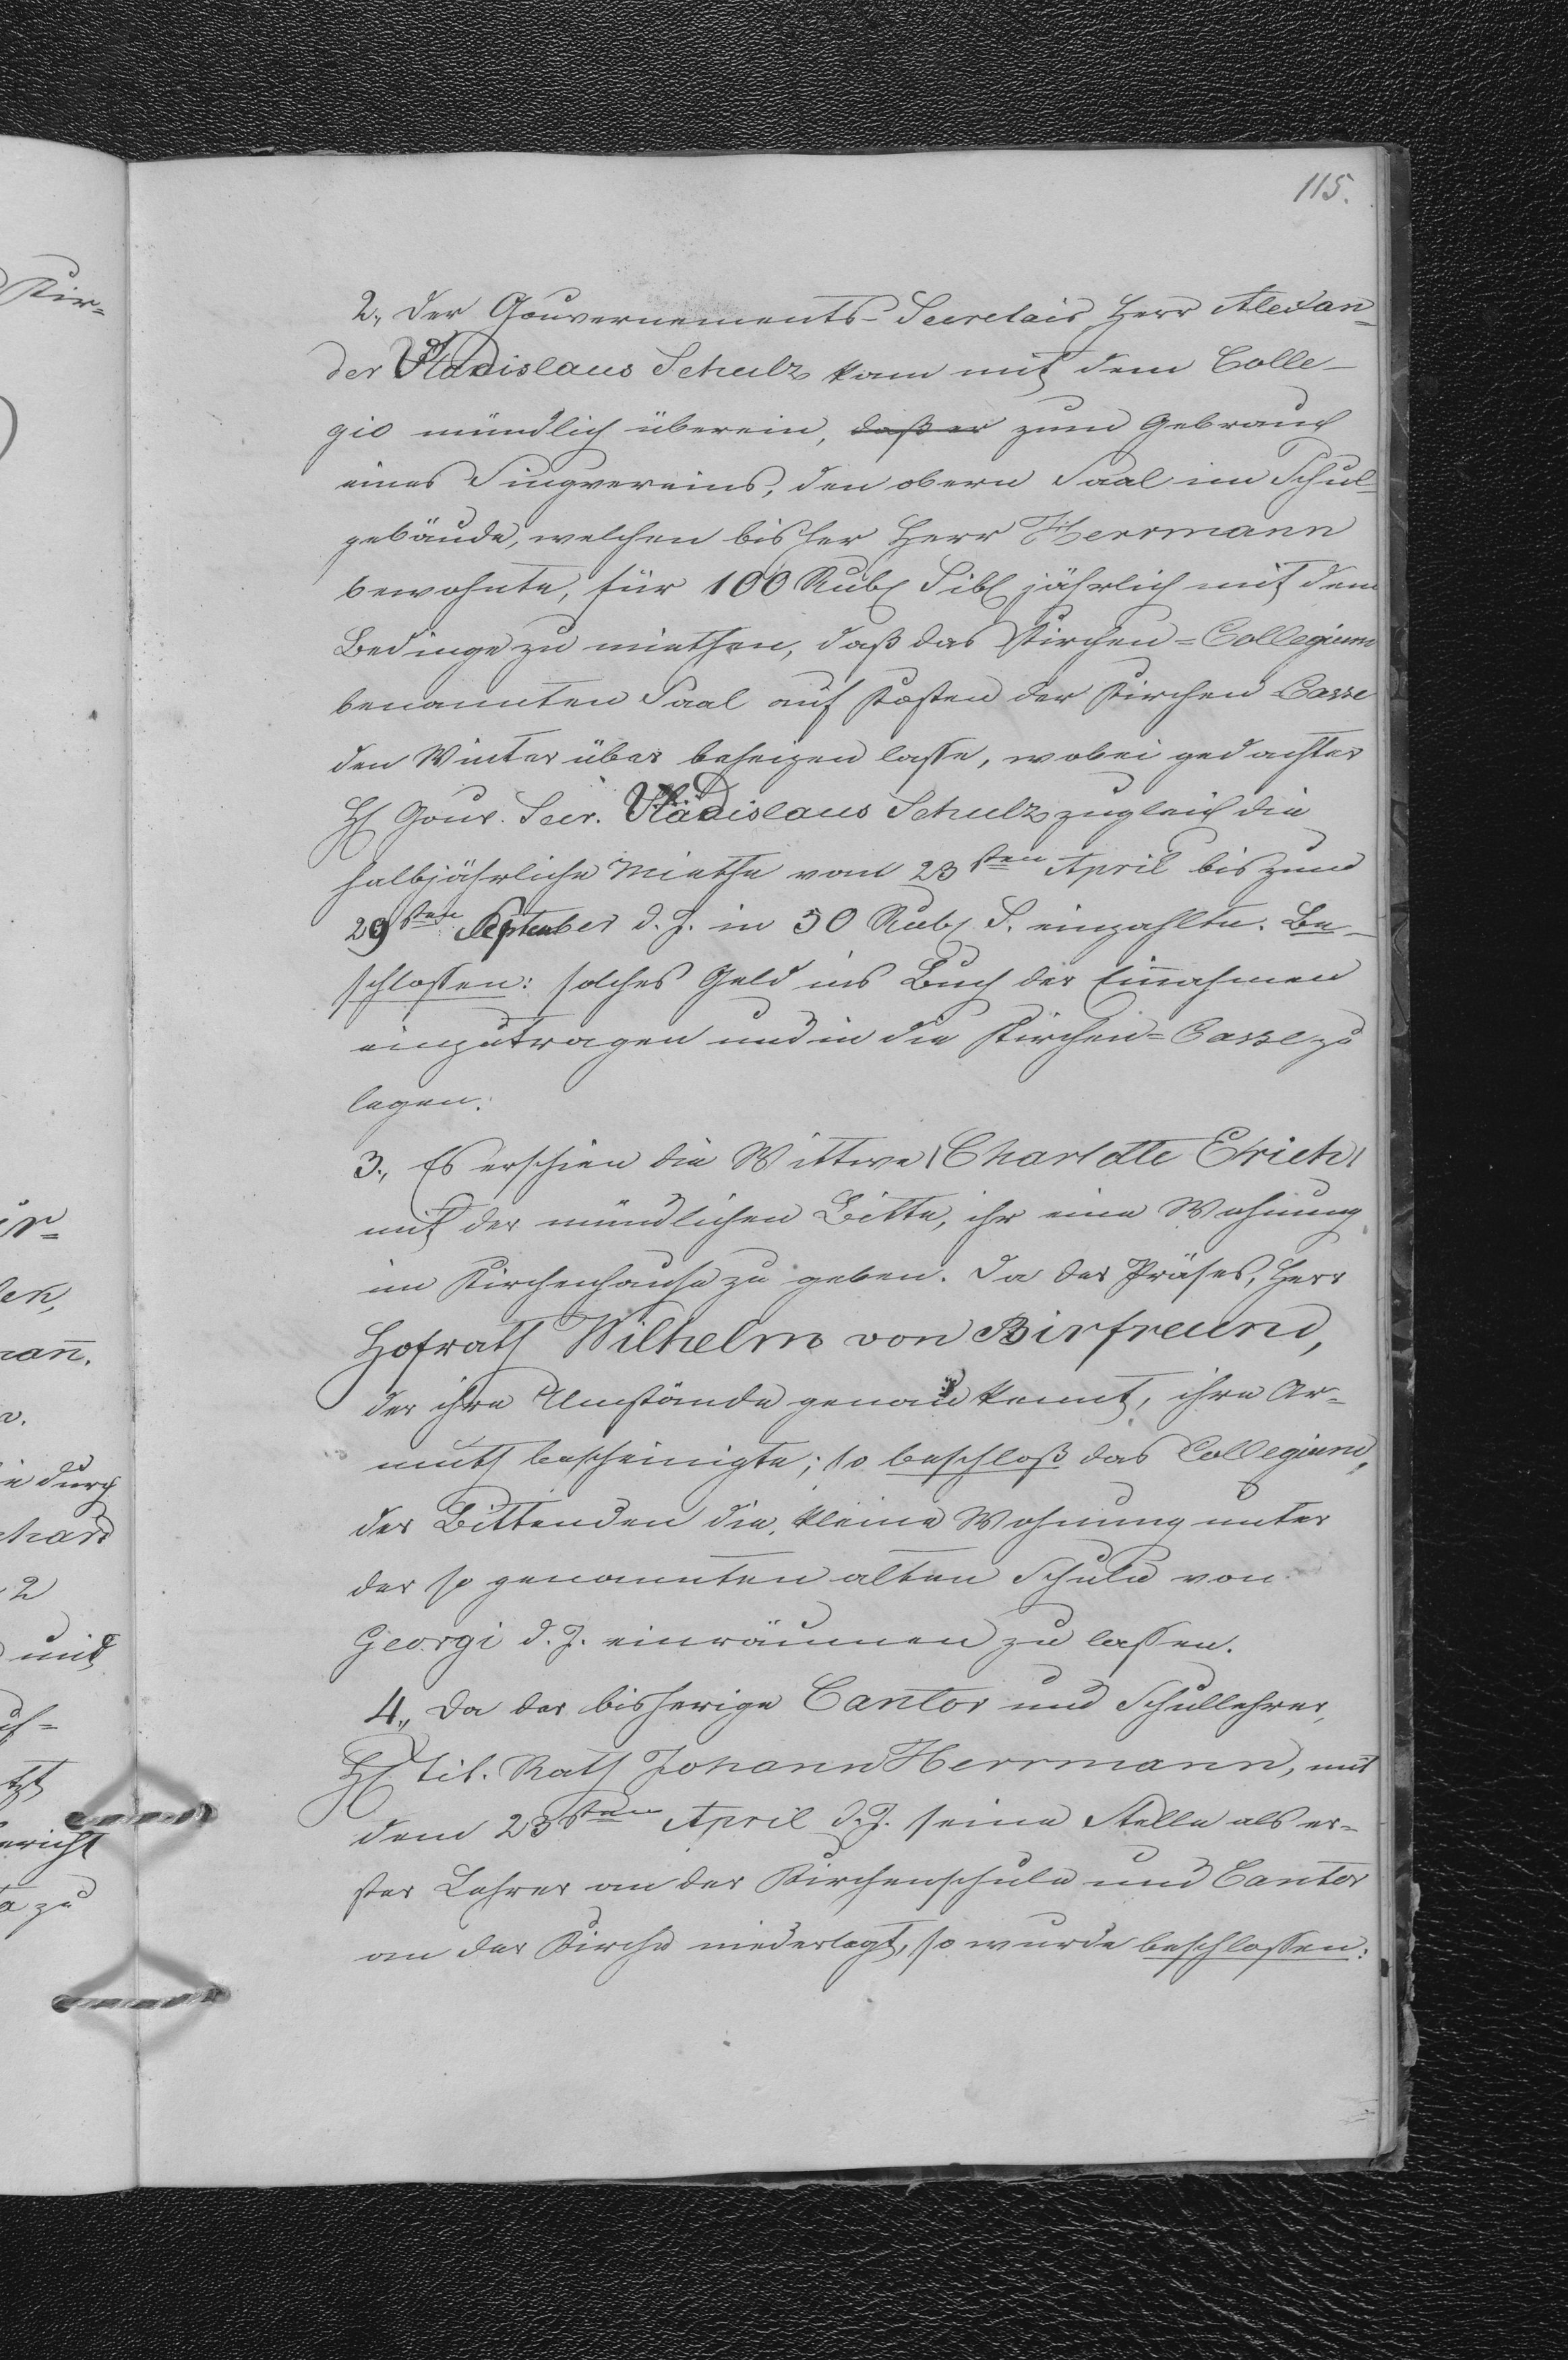 115.
2., Der Gouvernements-Secretair Herr Alexan=
der Vladislaus Schulz kam mit dem Colle-
gio mündlich überein, daß er zum Gebrauch
eines Singvereins, den obern Saal im Schul=
gebäude, welchen bisher Herr Herrmann
bewohnte, für 100 Rub Silb jährlich mit dem
Bedinge zu miethen, daß das Kirchen=Collegium
benannten Saal auf Kosten der Kirchen Casse
den Winter über beheizen lasse, wobei gedachter
H Gouv. Secr. Vladislaus Schulz zugleich die
halbjährliche Miethe vom 23sten April bis zum
29sten September d. J. in 50 Rub S. einzahlte. Be-
schlossen: solches Geld ins Buch der Einnahmen
einzutragen und in die Kirchen=Casse zu
legen.
3., Es erschien die Wittwe Charlotte Erich
mit der mündlichen Bitte, ihr eine Wohnung
im Kirchenhause zu geben. Da der Präses, Herr
Hofrath Wilhelm von Birfreund,
der ihre Umstände genau kennt, ihre Ar=
muth bescheinigte; so beschloß das Collegium,
der Bittenden die kleine Wohnung unter
der so genannten alten Schule von
Georgi d. J. einräumen zu lassen.
4., Da der bisherige Cantor und Schullehrer,
H tit. Rath Johann Herrmann, mit
dem 23sten April d. J. seine Stelle als er=
ster Lehrer an der Kirchenschule und Cantor
an der Kirche niederlegt, so wurde beschlossen: